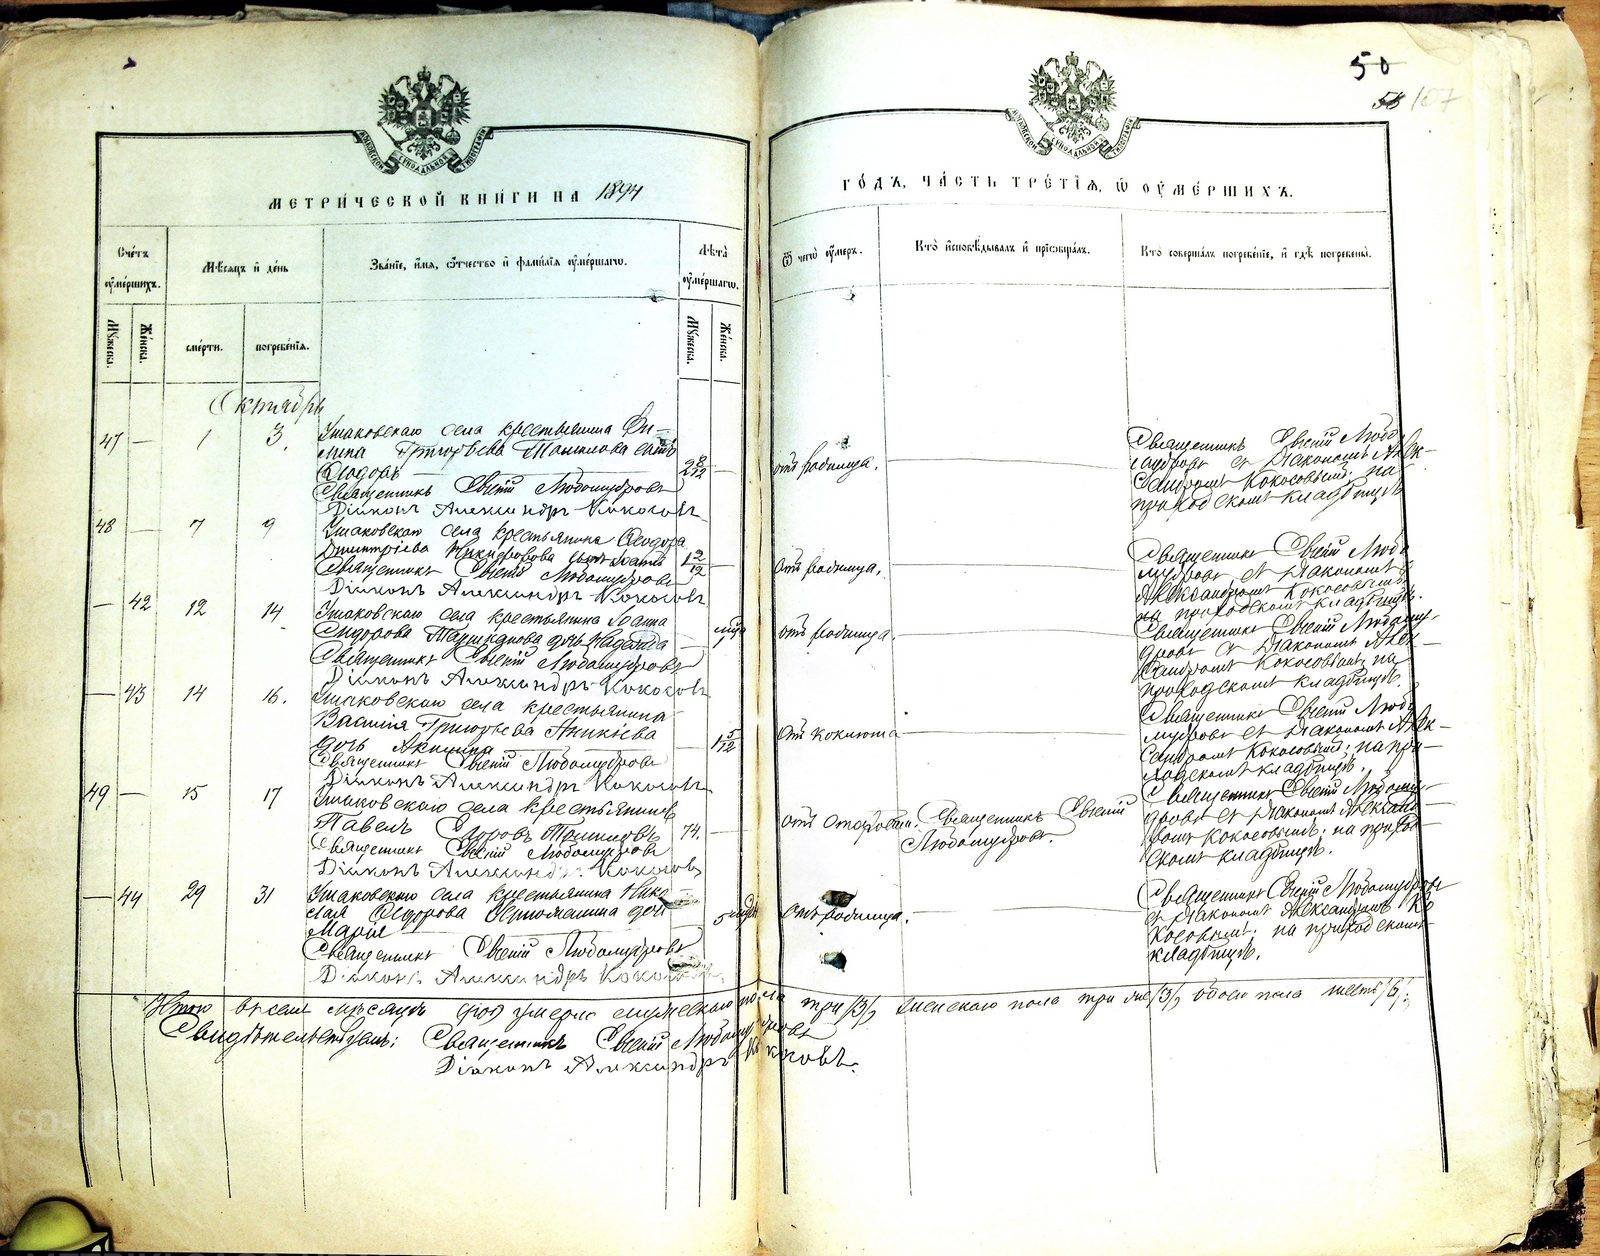 50
58 157
МЕТРИ́ЧЕСКОЙ КНИ́ГИ НА 1894
ГО́ДЪ, ЧА́СТЬ ТРЕ́ТІЯ, Ѽ ОУ҆МЕ́РШИХЪ.
Сче́тъ оу҆ме́ршихъ.
Мѣ́сяцъ и҆ де́нь
Зва́нїе, и҆́мя, ѻ҆́тчество и҆ фами́лїя оу҆ме́ршагѡ.
Лѣ́та оу҆ме́ршагѡ.
Ѿ чегѡ̀ оу҆́меръ.
Кто̀ и҆сповѣ́дывалъ и҆ прїѡбща́лъ.
Кто̀ соверша́лъ погребе́нїе, и҆ гдѣ̀ погребены̀.
Мꙋ́жеска.
Же́нска.
сме́рти.
погребе́нїя.
Мꙋ́жеска.
Же́нска.
Октябрь
47 — 1 3.
Ушаковскаго села крестьянина Фи-
липа Григорьева сынъ
Ѳеодоръ 2 8/12 —
Священникъ Евгеній Любомудровъ
Діаконъ Александръ Кокосовъ
отъ родимца.
Священникъ Евгеній Любо-
мудровъ съ діакономъ Алек-
сандромъ Кокосовымъ; на
приходскомъ кладбищѣ
48 — 7 9
Ушаковскаго села крестьянина Ѳеодора
Дмитріева сынъ 1 2/12 —
Священникъ Евгеній Любомудровъ
Діаконъ Александръ Кокосовъ
отъ родимца.
Священникъ Евгеній Любо-
мудровъ съ діакономъ
Александромъ Кокосовымъ;
на приходскомъ кладбищѣ.
— 42 12 14
Ушаковскаго села крестьянина Іоанна
Сидорова дочь Надежда —
Священникъ Евгеній Любомудровъ
Діаконъ Александръ Кокосовъ
отъ родимца
Священникъ Евгеній Любому-
дровъ съ діакономъ Алек-
сандромъ Кокосовымъ; на
приходскомъ кладбищѣ.
— 43 14 16.
Ушаковскаго села крестьянина
Василія Григорьева Аникіева
дочь Акилина — 1 5/12
Священникъ Евгеній Любомудровъ
Діаконъ Александръ Кокосовъ
отъ коклюша
Священникъ Евгеній Любо-
мудровъ съ діакономъ Алек-
сандромъ Кокосовымъ; на при-
ходскомъ кладбищѣ.
49 — 15 17
Ушаковскаго села крестьянинъ
Павелъ Егоровъ 74. —
Священникъ Евгеній Любомудровъ
Діаконъ Александръ Кокосовъ
отъ старости.
Священникъ Евгеній
Любомудровъ.
Священникъ Евгеній Любому-
дровъ съ діакономъ Александ-
ромъ Кокосовымъ; на приход-
скомъ кладбищѣ.
— 44 29 31
Ушаковскаго села крестьянина Нико-
лая Ѳедорова дочь
Марія 5
Священникъ Евгеній Любомудровъ
Діаконъ Александръ Кокосовъ
отъ родимца.
Священникъ Евгеній Любомудровъ
съ діакономъ Александромъ Ко-
косовымъ; на приходскомъ
кладбищѣ.
Итого въ семъ мѣсяцѣ умерло мужескаго пола три /3/, женскаго пола три /3/, обоего пола шесть /6/.
Свидѣтельствуемъ: Священникъ Евгеній Любомудровъ
Діаконъ Александръ Кокосовъ.